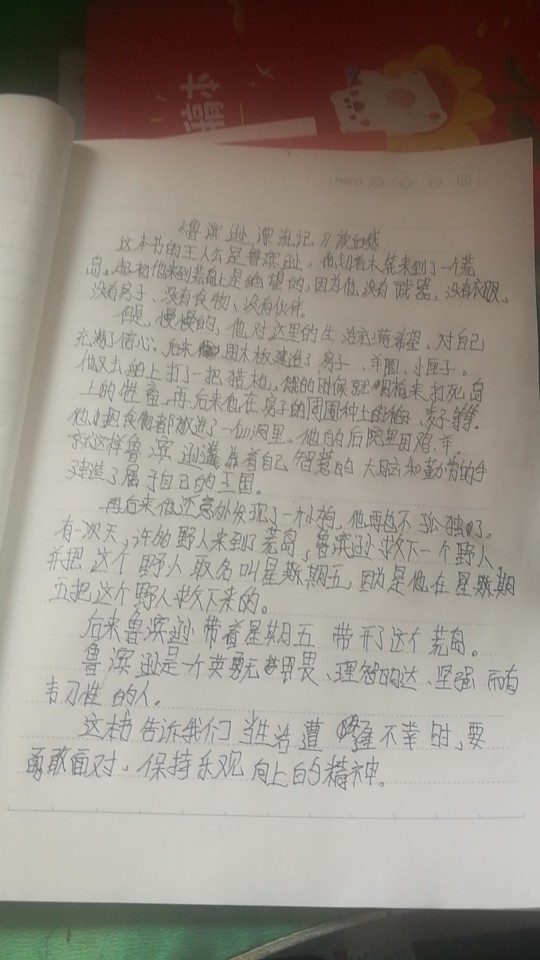 《鲁滨逊漂流记》读后感
这本书的主人公是鲁滨逊,他划着木筏来到了一个荒
岛。起初他来到荒岛上是绝望的,因为他没有武器,没有衣服,
没有房子、没有食物、没有伙伴。
但是,慢慢的,他对这里的生活充满希望,对自己
充满了信心,后来用木板建造了房子、羊圈、小屋子。
他又去船上打了一把猎枪,饿的时候就用枪来打死岛
上的牲畜,再后来他在房子的周围种上稻、麦子等等。
他把食物都放进了一个山洞里,他的后院里由鸡、羊,
就这样鲁滨逊靠着自己智慧的大脑和勤劳的手
建造了属于自己的王国。
再后来他还意外发现了一个小狗,他再也不孤独了。
有一次天,许多野人来到了荒岛,鲁滨逊救下一个野人,
并把这个野人取名叫星期五,因为是他在星期
五把这个野人救下来的。
后来鲁滨逊带着星期五带开了这个荒岛。
鲁滨逊是一个英勇无畏、理智、坚强而有
韧性的人。
这本书告诉我们当生活遭遇不幸时,要
勇敢面对,保持乐观向上的精神。